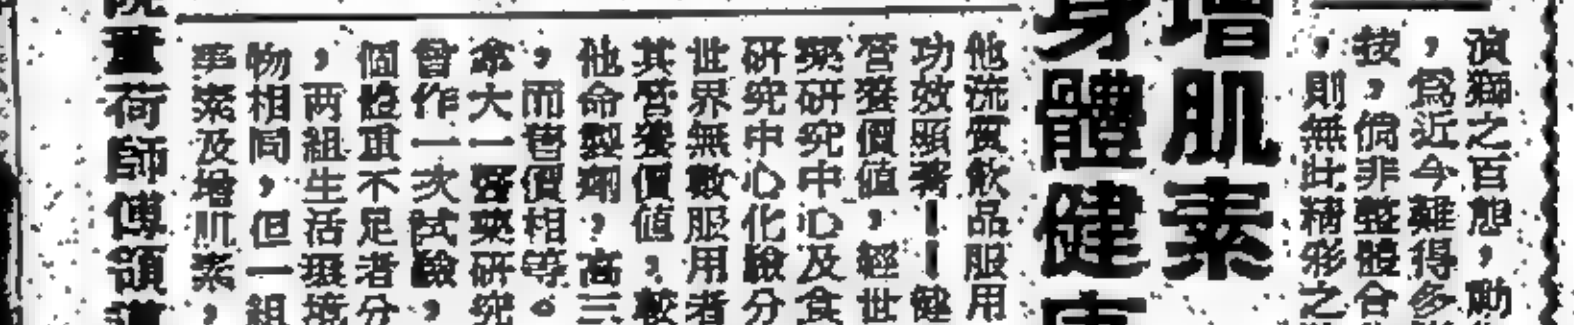 演獅之百態，動
，為近今難得多
技，倘非整體合
，則無此精彩之
增肌素
身體健康
他流質飲品服用
功效顯著——健
營養價值，經世
藥研究中心及食
研究中心化驗分
世界無數服用者
其營養價值，較
他命製劑，高三
，而售價相等。
拿大一醫藥研究
曾作一次試驗，
個體重不足者分
，两組生活環境
物相同，但一組
率素及增肌素，
院董荷師傅領導